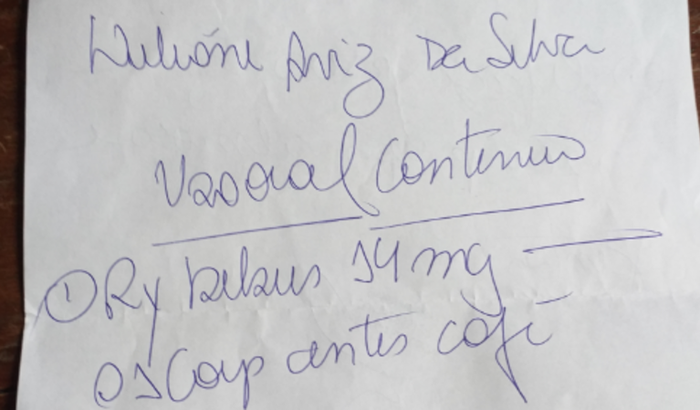 Aviz Da Silva
Uso oral Contínuo
① Rybelsus 14 mg
01 Comp antes café